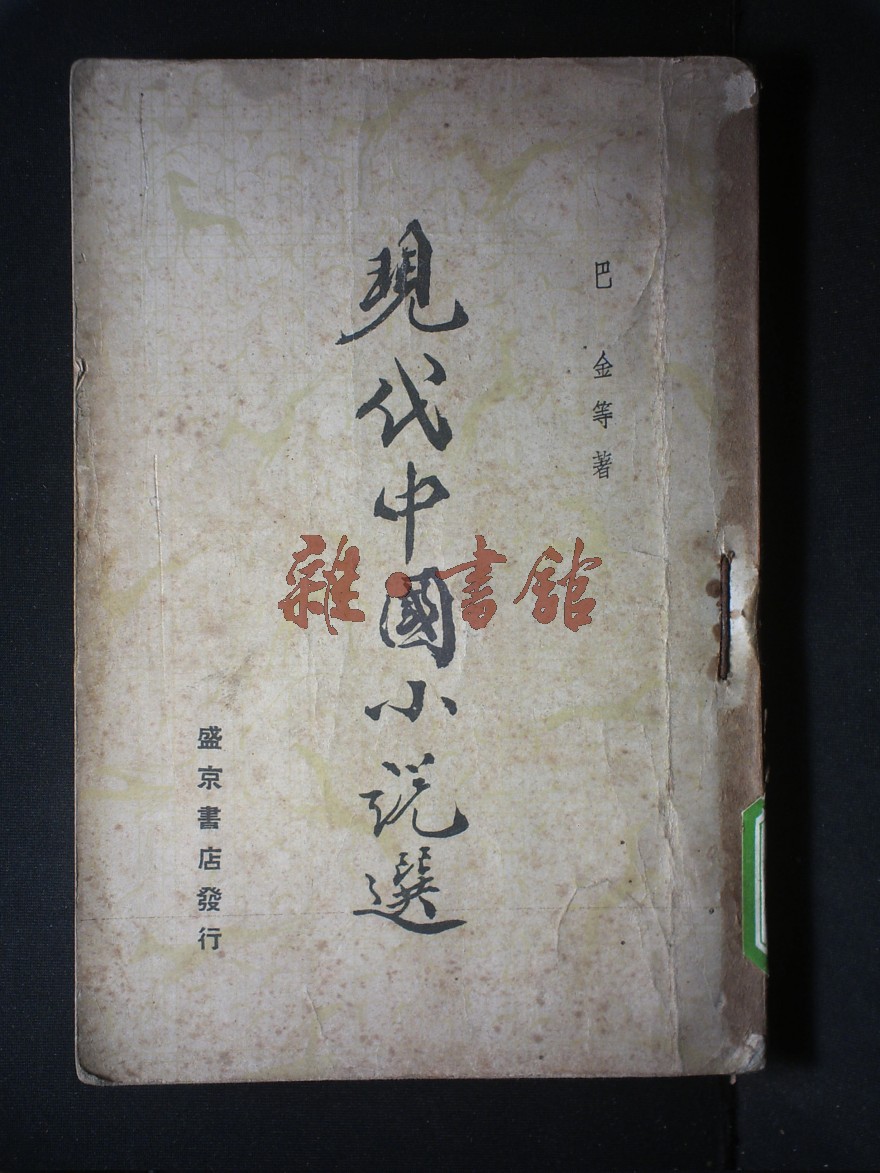 巴金等著
現代中國小說選
盛京書店發行
雜·書館